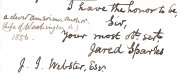 I have the honor to be,
Sir,
your most ob. sert,
Jared Sparks
a clever American author.
Life of Washington
1856
J. J. Webster, Esq.